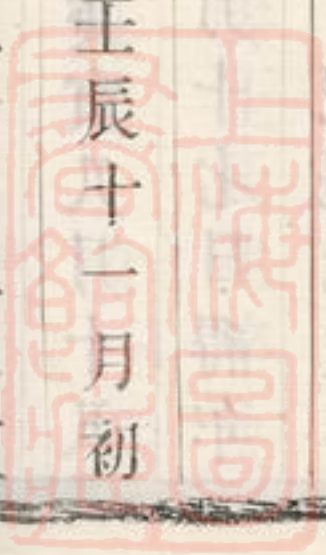 壬辰十一月初
上海圖書館藏